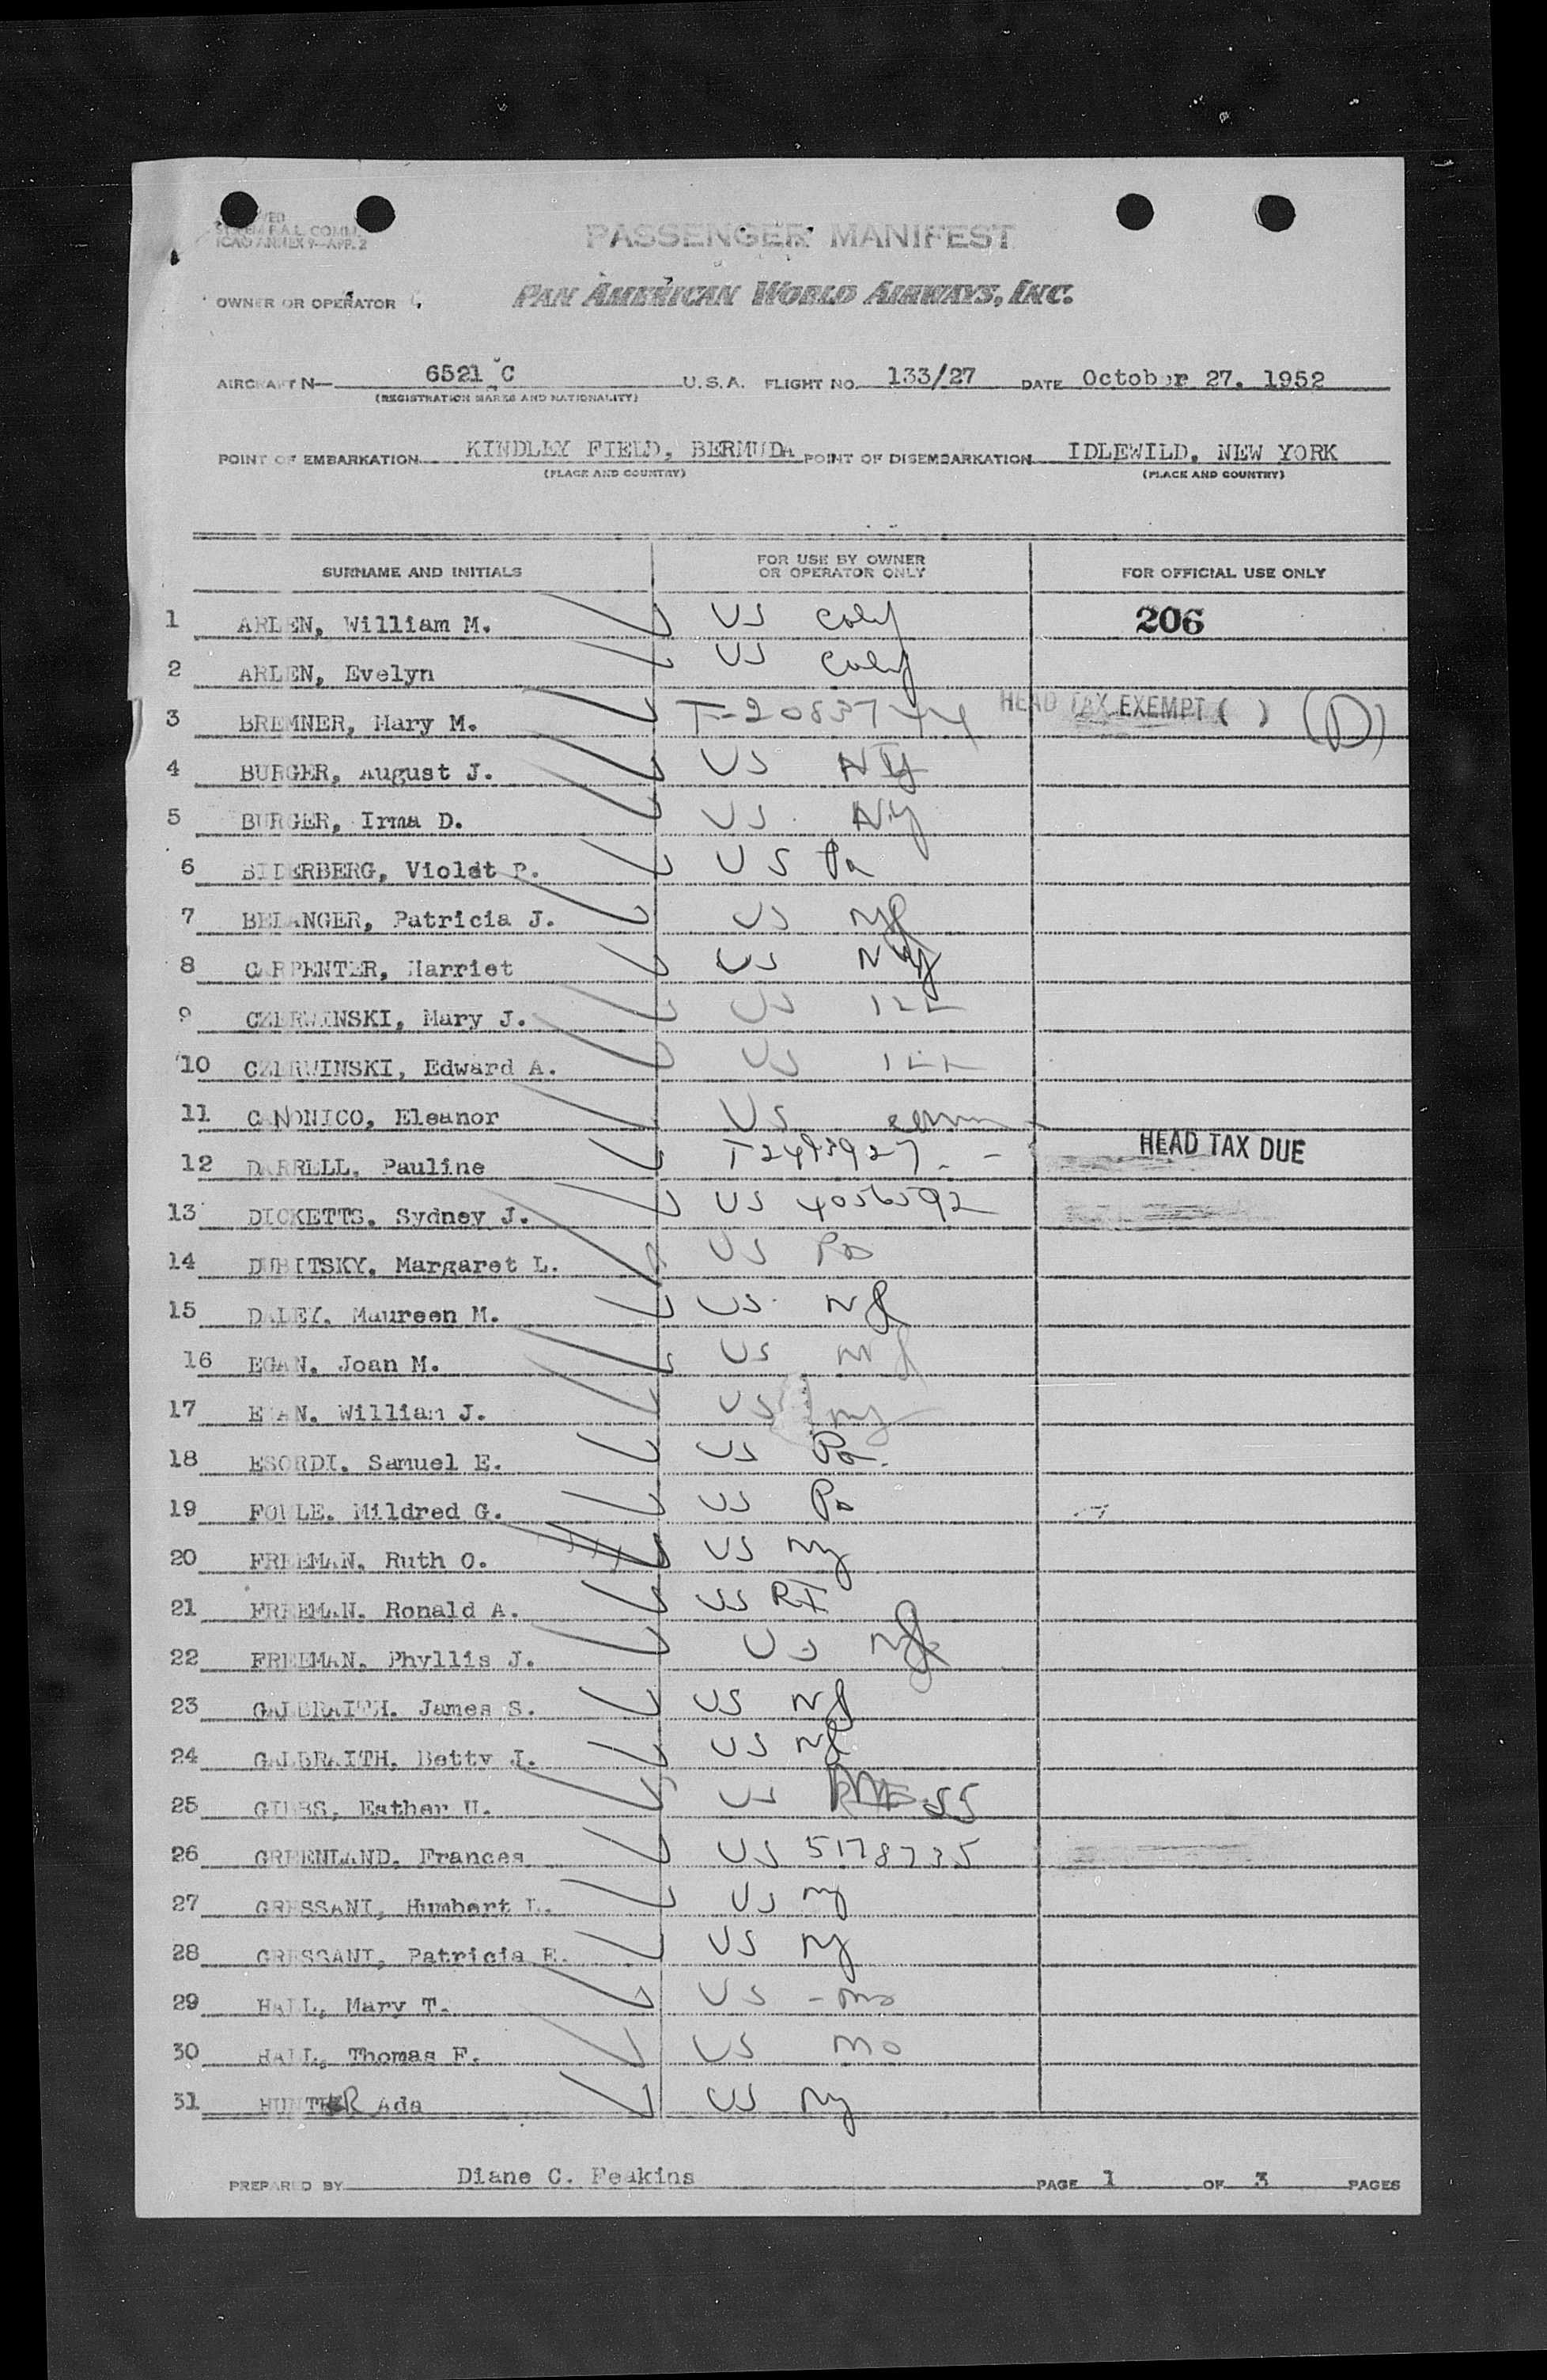 PASSENGER MANIFEST
F.A.L. COMM.
ICAO ANNEX 9—APP. 2
OWNER OR OPERATOR PAN AMERICAN WORLD AIRWAYS, INC.
AIRCRAFT N— 6521 C U.S.A. FLIGHT NO. 133/27 DATE October 27. 1952
(REGISTRATION MARKS AND NATIONALITY)
POINT OF EMBARKATION KINDLEY FIELD, BERMUDA POINT OF DISEMBARKATION IDLEWILD, NEW YORK
(PLACE AND COUNTRY) (PLACE AND COUNTRY)
SURNAME AND INITIALS FOR USE BY OWNER OR OPERATOR ONLY FOR OFFICIAL USE ONLY
1 ARLEN, William M. US Calif 206
2 ARLEN, Evelyn US Calif
3 BREMNER, Mary M. T-2083744 HEAD TAX EXEMPT ( ) (D)
4 BURGER, August J. US NY
5 BURGER, Irma D. US NY
6 BIDERBERG, Violet P. US Pa
7 BELANGER, Patricia J. US NJ
8 CARPENTER, Harriet US NY
9 CZERWINSKI, Mary J. US ILL
10 CZERWINSKI, Edward A. US ILL
11 CANONICO, Eleanor US Conn
12 DARRELL, Pauline T2493927 HEAD TAX DUE
13 DICKETTS. Sydney J. US 4056592
14 DUBITSKY. Margaret L. US Pa
15 DALEY. Maureen M. US NJ
16 EGAN. Joan M. US NJ
17 EGAN. William J. US NY
18 ESORDI. Samuel E. US Pa.
19 FOULE. Mildred G. US Pa
20 FREEMAN. Ruth O. US NY
21 FREEMAN. Ronald A. US RI
22 FREEMAN, Phyllis J. US NJ
23 GALBRAITH. James S. US NJ
24 GALBRAITH. Betty J. US NJ
25 GIBBS, Esther H. US MASS
26 GREENLAND. Frances US 5178735
27 GRESSANI, Humbert L. US NY
28 GRESSANI, Patricia E. US NY
29 HALL, Mary T. US - Mo
30 HALL, Thomas F. US Mo
31 HUNTER Ada US NY
PREPARED BY Diane C. Feakins PAGE 1 OF 3 PAGES